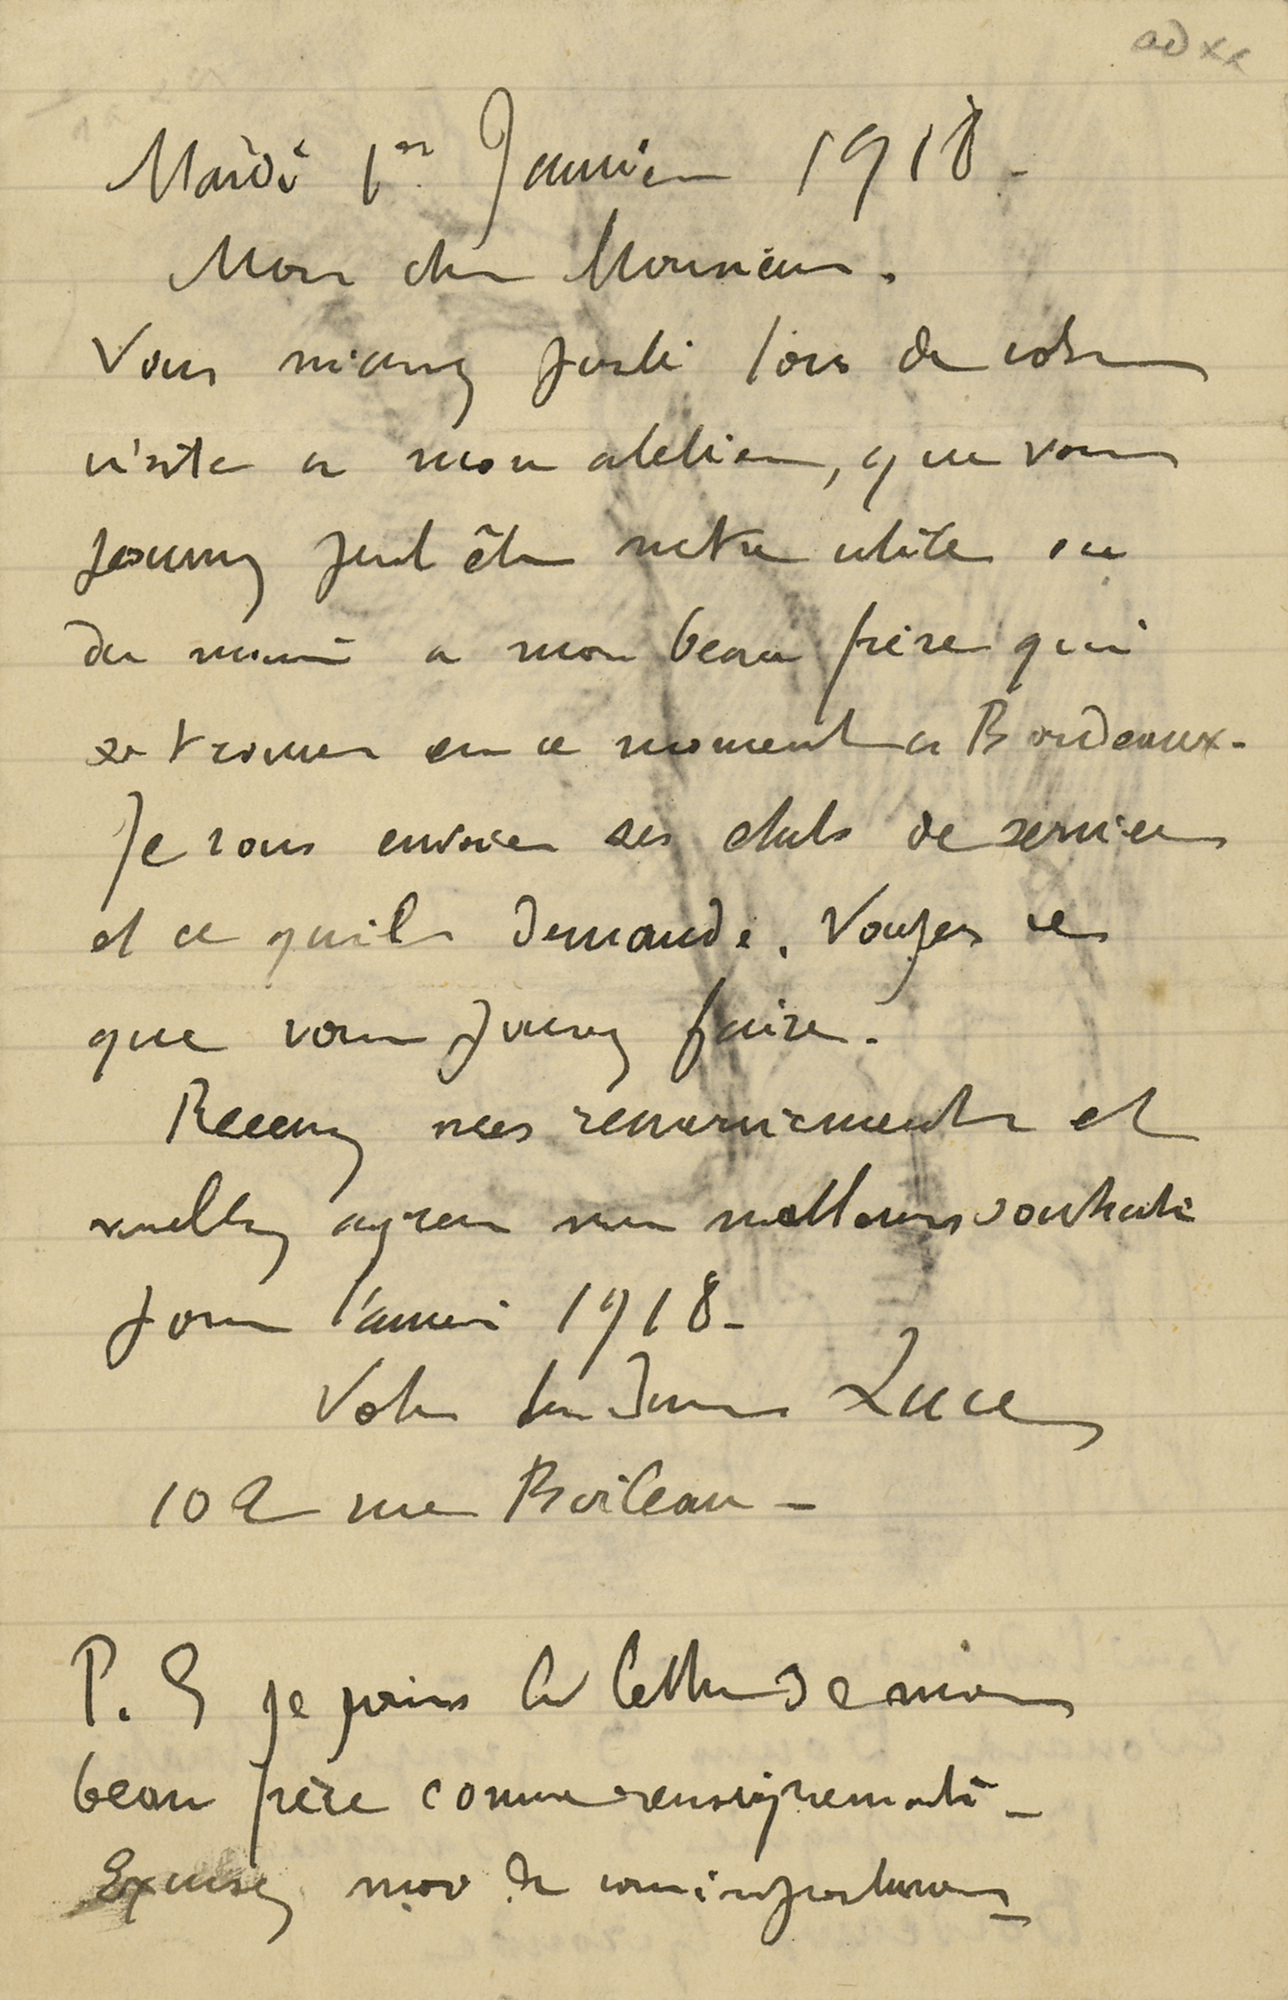 Mardi 1er Janvier 1918 -
Mon cher Monsieur.
Vous m'avez parlé lors de votre
visite a mon atelier, que vous
pouvez peut être m'etre utile ou
du moins a mon beau frère qui
se trouve en ce moment a Bordeaux -
Je vous envoie ses etats de service
et ce qu'il demande. Voyez ce
que vous pouvez faire.
Recevez mes remerciements et
veuillez agreer mes meilleurs souhaits
pour l'année 1918 -
Votre bien devoué Luce
102 rue Boileau -
P. S je joins la lettre de mon
beau frère comme renseignements -
Excusez moi de vous importuner -